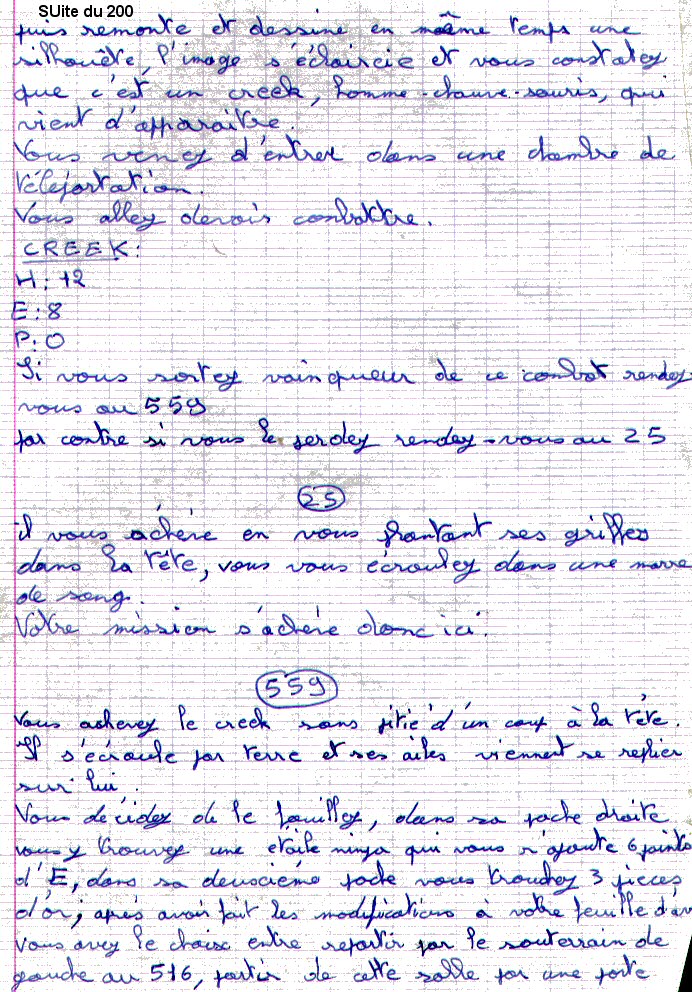 SUite du 200
puis remonte et dessine en même temps une
silhouête, l'image s'éclaircie et vous constatez
que c'est un creek, homme-chauve-souris, qui
vient d'apparaitre.
Vous venez d'entrer dans une chambre de
téléportation.
Vous allez devois combattre.
CREEK:
H: 12
E: 8
P: 0
Si vous sortez vainqueur de ce combat rendez-
vous au 559
par contre si vous le perdez rendez-vous au 25
25
il vous achève en vous plantant ses griffes
dans la tête, vous vous écroulez dans une marre
de sang.
Votre mission s'achève donc ici.
559
Vous achevez le creek sans pitié d'un coup à la tête.
Il s'écroule par terre et ses ailes viennent se replier
sur lui.
Vous décidez de le fouillez, dans sa poche droite
vous y trouvez une étoile ninja qui vous r'ajoute 6 points
d'E, dans sa deuxième poche vous trouvez 3 pièces
d'or; après avoir fait les modifications à votre feuille d'av
Vous avez le choix entre repartir par le souterrain de
gauche au 516, partir de cette salle par une porte